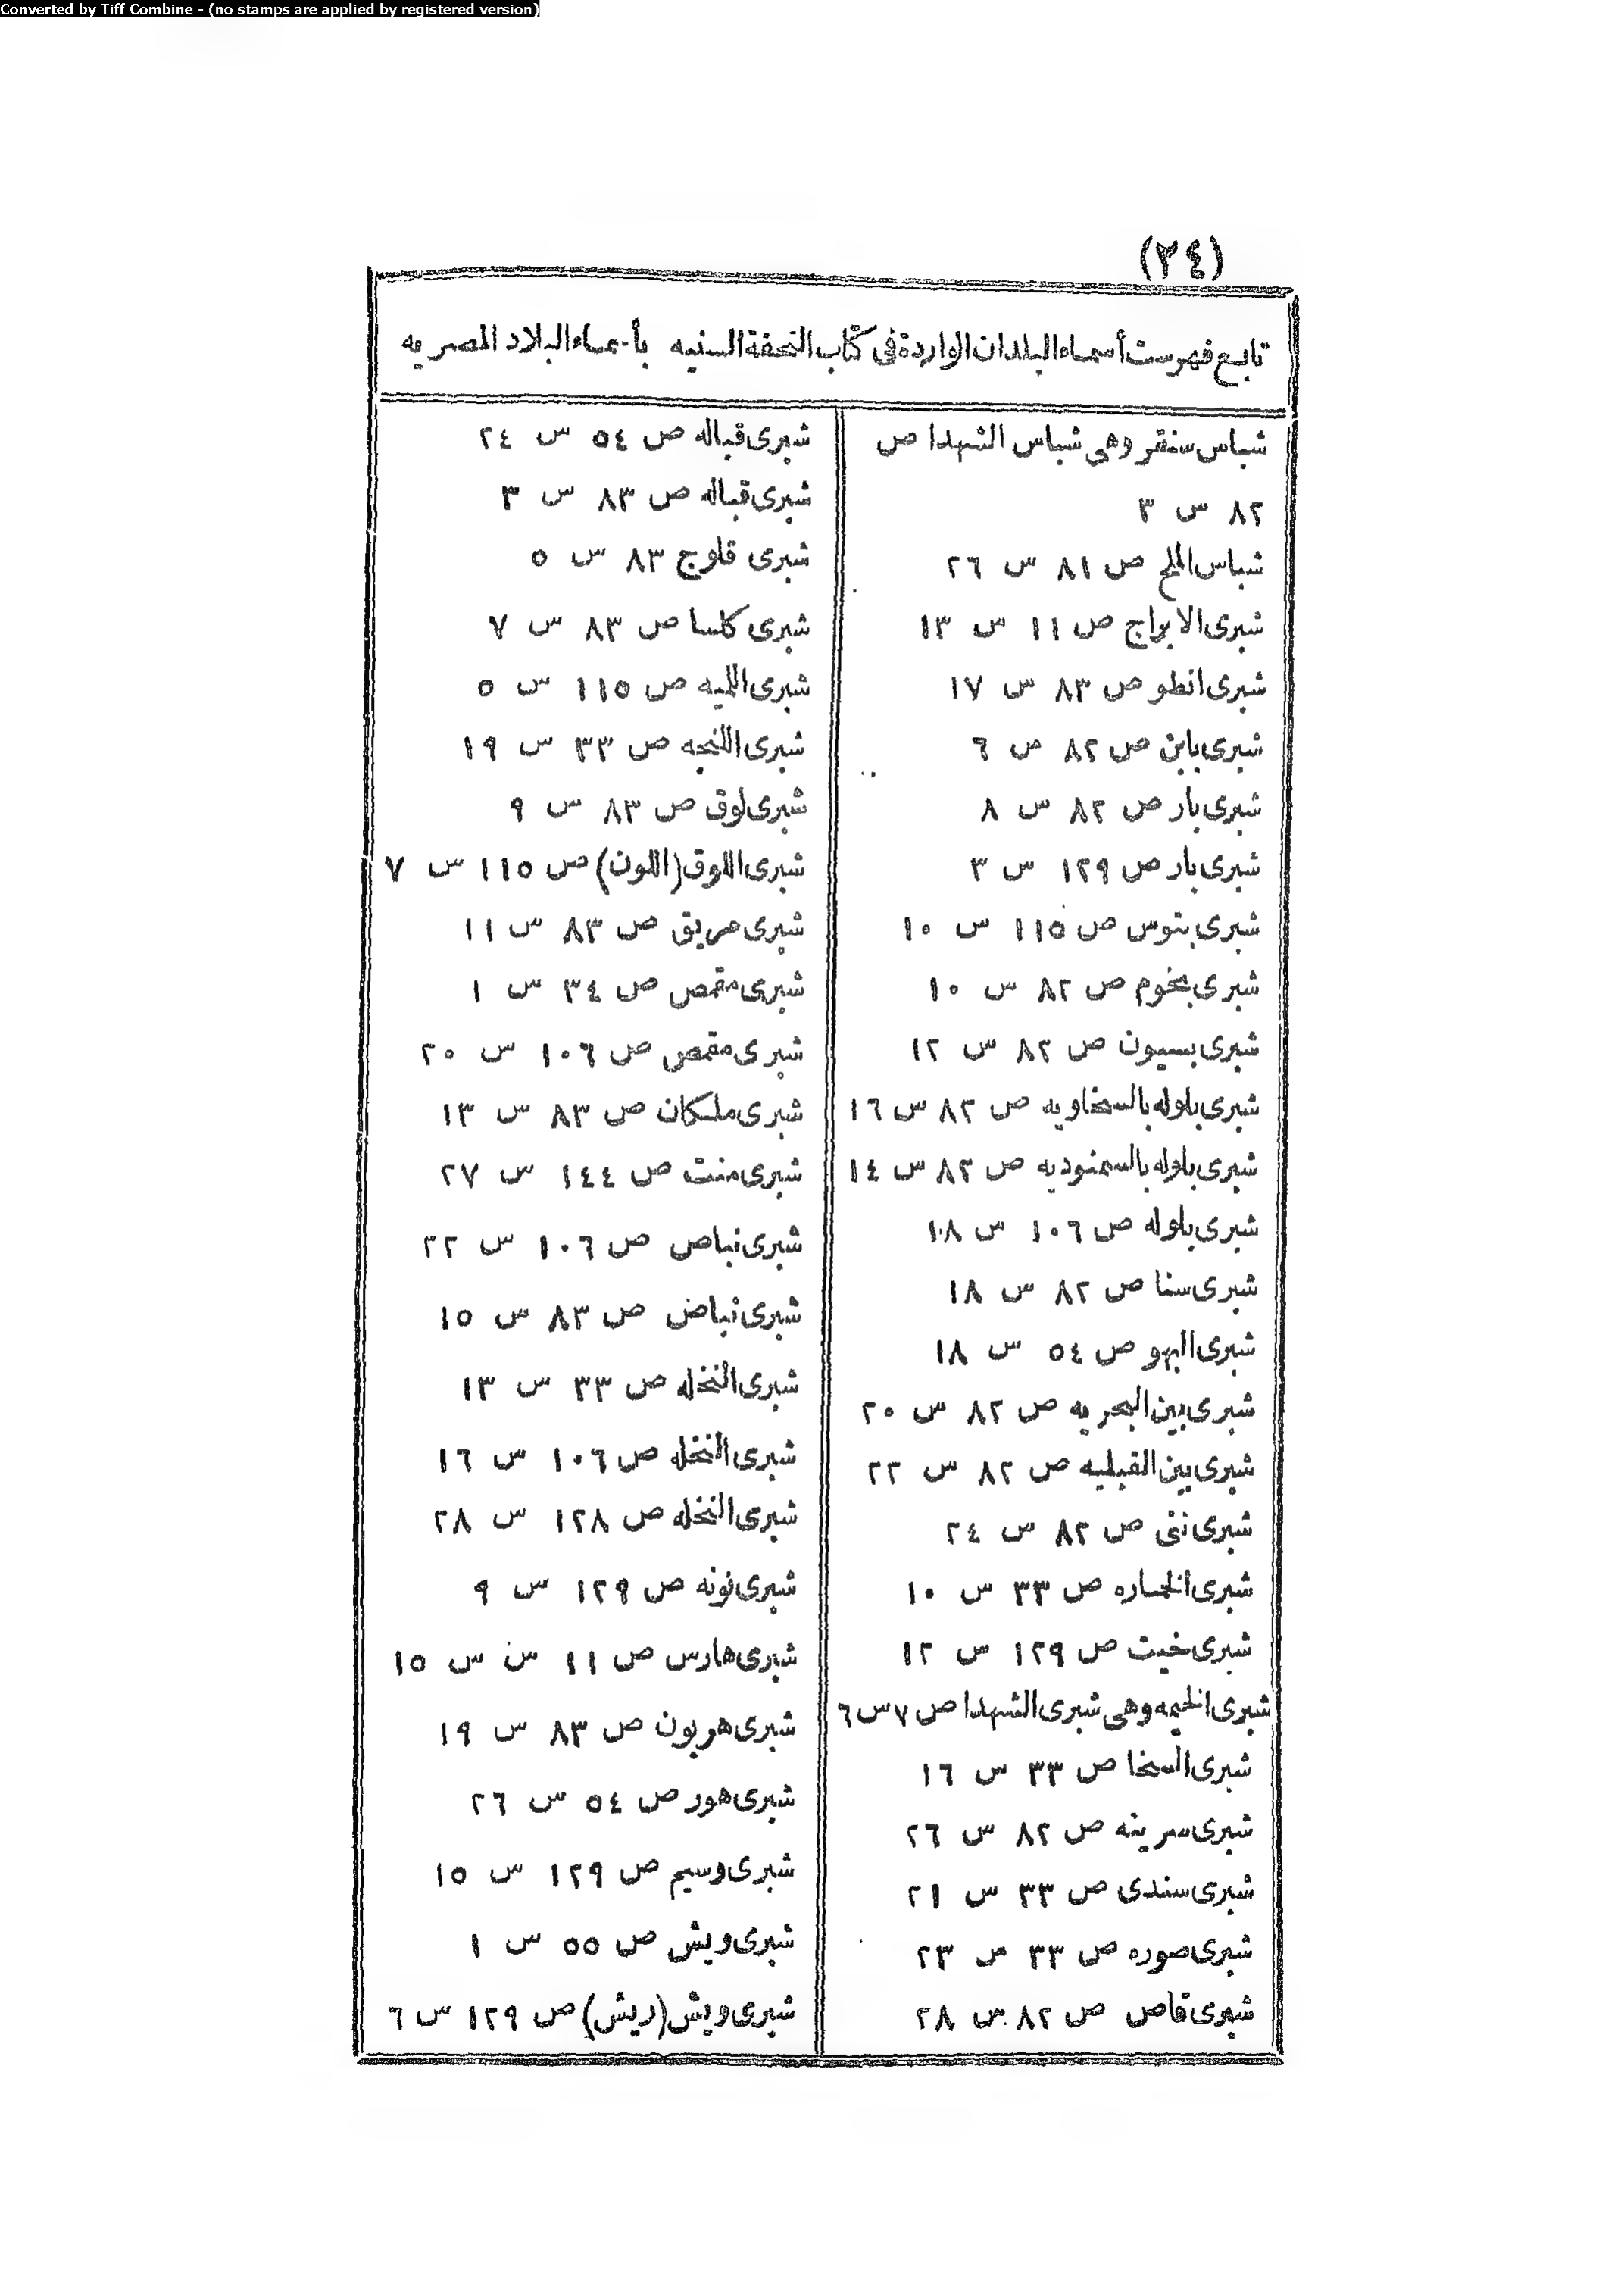 Converted by Tiff Combine - (no stamps are applied by registered version)
(٢٤)
تابع فهرست أسماء البلدان الواردة في كتاب التحفة السنيه بأسماء البلاد المصريه
شباس سنقر وهى شباس الشهدا ص
٨٢ س ٣
شباس الملح ص ٨١ س ٢٦
شبرى الابراج ص ١١ س ١٣
شبرى انطو ص ٨٣ س ١٧
شبرى بابن ص ٨٢ س ٦
شبرى بار ص ٨٢ س ٨
شبرى بار ص ١٢٩ س ٣
شبرى بتوس ص ١١٥ س ١٠
شبرى بخوم ص ٨٢ س ١٠
شبرى بسيون ص ٨٢ س ١٢
شبرى بلوله بالسخاويه ص ٨٢ س ١٦
شبرى بلوله بالسمنوديه ص ٨٢ س ١٤
شبرى بلوله ص ١٠٦ س ١٨
شبرى سنا ص ٨٢ س ١٨
شبرى البهو ص ٥٤ س ١٨
شبرى بين البحريه ص ٨٢ س ٢٠
شبرى بين القبليه ص ٨٢ س ٢٢
شبرى نتى ص ٨٢ س ٢٤
شبرى الخماره ص ٣٣ س ١٠
شبرى خيت ص ١٢٩ س ١٢
شبرى الخيمه وهى شبرى الشهدا ص ٧ س ٦
شبرى السخا ص ٣٣ س ١٦
شبرى سرينه ص ٨٢ س ٢٦
شبرى سندى ص ٣٣ س ٢١
شبرى صوره ص ٣٣ س ٢٣
شبرى قاص ص ٨٢ س ٢٨
شبرى قباله ص ٥٤ س ٢٤
شبرى قباله ص ٨٣ س ٣
شبرى قلوج ٨٣ س ٥
شبرى كلسا ص ٨٣ س ٧
شبرى اللميه ص ١١٥ س ٥
شبرى اللنجه ص ٣٣ س ١٩
شبرى لوق ص ٨٣ س ٩
شبرى اللوق (اللون) ص ١١٥ س ٧
شبرى مريق ص ٨٣ س ١١
شبرى مقمص ص ٣٤ س ١
شبرى مقمص ص ١٠٦ س ٢٠
شبرى ملكان ص ٨٣ س ١٣
شبرى منت ص ١٤٤ س ٢٧
شبرى نباص ص ١٠٦ س ٢٢
شبرى نباض ص ٨٣ س ١٥
شبرى النخله ص ٣٣ س ١٣
شبرى النخله ص ١٠٦ س ١٦
شبرى النخله ص ١٢٨ س ٢٨
شبرى نونه ص ١٢٩ س ٩
شبرى هارس ص ١١ س س ١٥
شبرى هربون ص ٨٣ س ١٩
شبرى هور ص ٥٤ س ٢٦
شبرى وسيم ص ١٢٩ س ١٥
شبرى ويش ص ٥٥ س ١
شبرى ويش (ريش) ص ١٢٩ س ٦